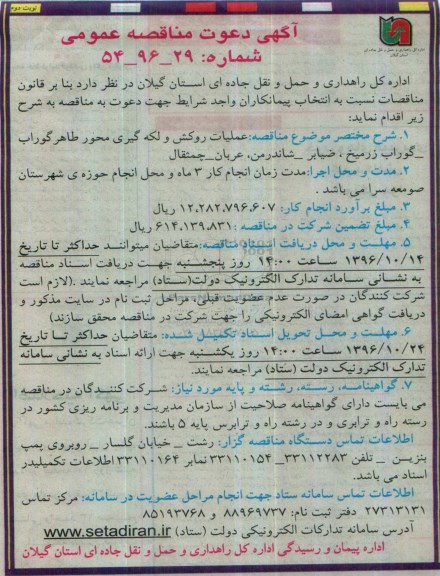 نوبت دوم
آگهی دعوت مناقصه عمومی
شماره: ۲۹_۹۶_۵۴
اداره کل راهداری و حمل و نقل جاده ای
استان گیلان
اداره کل راهداری و حمل و نقل جاده ای استان گیلان در نظر دارد بنا بر قانون
مناقصات نسبت به انتخاب پیمانکاران واجد شرایط جهت دعوت به مناقصه به شرح
زیر اقدام نماید:
۱. شرح مختصر موضوع مناقصه:عملیات روکش و لکه گیری محور طاهرگوراب
_گوراب زرمیخ ، ضیابر _شاندرمن، عربان_چمثقال
۲. مدت و محل اجرا:مدت زمان انجام کار ۳ ماه و محل انجام حوزه ی شهرستان
صومعه سرا می باشد .
۳. مبلغ برآورد انجام کار: ۱۲،۲۸۲،۷۹۶،۶۰۷ ریال
۴. مبلغ تضمین شرکت در مناقصه :۶۱۴،۱۳۹،۸۳۱ ریال
۵. مهلت و محل دریافت اسناد مناقصه:متقاضیان میتوانند حداکثر تا تاریخ
۱۳۹۶/۱۰/۱۴ ساعت ۱۴:۰۰ روز پنجشنبه جهت دریافت اسناد مناقصه
به نشانی سامانه تدارک الکترونیک دولت(ستاد) مراجعه نمایند .(لازم است
شرکت کنندگان در صورت عدم عضویت قبلی، مراحل ثبت نام در سایت مذکور و
دریافت گواهی امضای الکترونیکی را جهت شرکت در مناقصه محقق سازند)
۶. مهلت و محل تحویل اسناد تکمیل شده: متقاضیان حداکثر تا تاریخ
۱۳۹۶/۱۰/۲۴ ساعت ۱۴:۰۰ روز یکشنبه جهت ارائه اسناد به نشانی سامانه
تدارک الکترونیک دولت (ستاد) مراجعه نمایند.
۷. گواهینامه، رسته، رشته و پایه مورد نیاز: شرکت کنندگان در مناقصه
می بایست دارای گواهینامه صلاحیت از سازمان مدیریت و برنامه ریزی کشور در
رسته راه و ترابری و در رشته راه و ترابرس پایه ۵ باشند.
اطلاعات تماس دستگاه مناقصه گزار: رشت _ خیابان گلسار _ روبروی پمپ
بنزین _ تلفن ۳۳۱۱۲۲۸۳_ ۳۳۱۱۰۱۵۴ نمابر ۳۳۱۱۰۱۶۴ اطلاعات تکمیلیدر
اسناد می باشد.
اطلاعات تماس سامانه ستاد جهت انجام مراحل عضویت در سامانه: مرکز تماس
۲۷۳۱۳۱۳۱ دفتر ثبت نام: ۸۸۹۶۹۷۳۷ و ۸۵۱۹۳۷۶۸
آدرس سامانه تدارکات الکترونیکی دولت (ستاد) www.setadiran.ir
اداره پیمان و رسیدگی اداره کل راهداری و حمل و نقل جاده ای استان گیلان